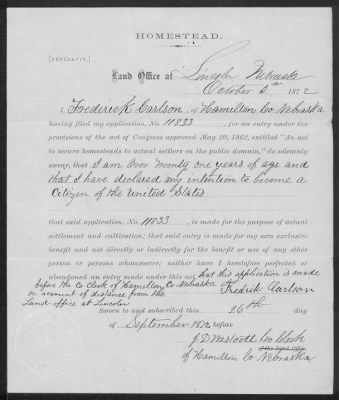 HOMESTEAD.
[AFFIDAVIT.]
Land Office at Lincoln Nebraska
October 5th 1872
I, Frederick Carlson, of Hamilton Co Nebraska
having filed my application, No. 11833, for an entry under the
provisions of the act of Congress approved May 20, 1862, entitled "An act
to secure homesteads to actual settlers on the public domain," do solemnly
swear, that I am Over Twenty one years of age and
that I have declared my intention to become a
Citizen of the United States
that said application, No. 11833, is made for the purpose of actual
settlement and cultivation; that said entry is made for my own exclusive
benefit and not directly or indirectly for the benefit or use of any other
person or persons whomsoever; neither have I heretofore perfected or
abandoned an entry made under this act that this application is made
before the Co Clerk of Hamilton Co Nebraska
on account of distance from the
Land office at Lincoln
Fredrik Carlson
Sworn to and subscribed this 26th day
of September 1872 before
J D Westcott Co Clerk
of the Land Office
of Hamilton Co Nebraska